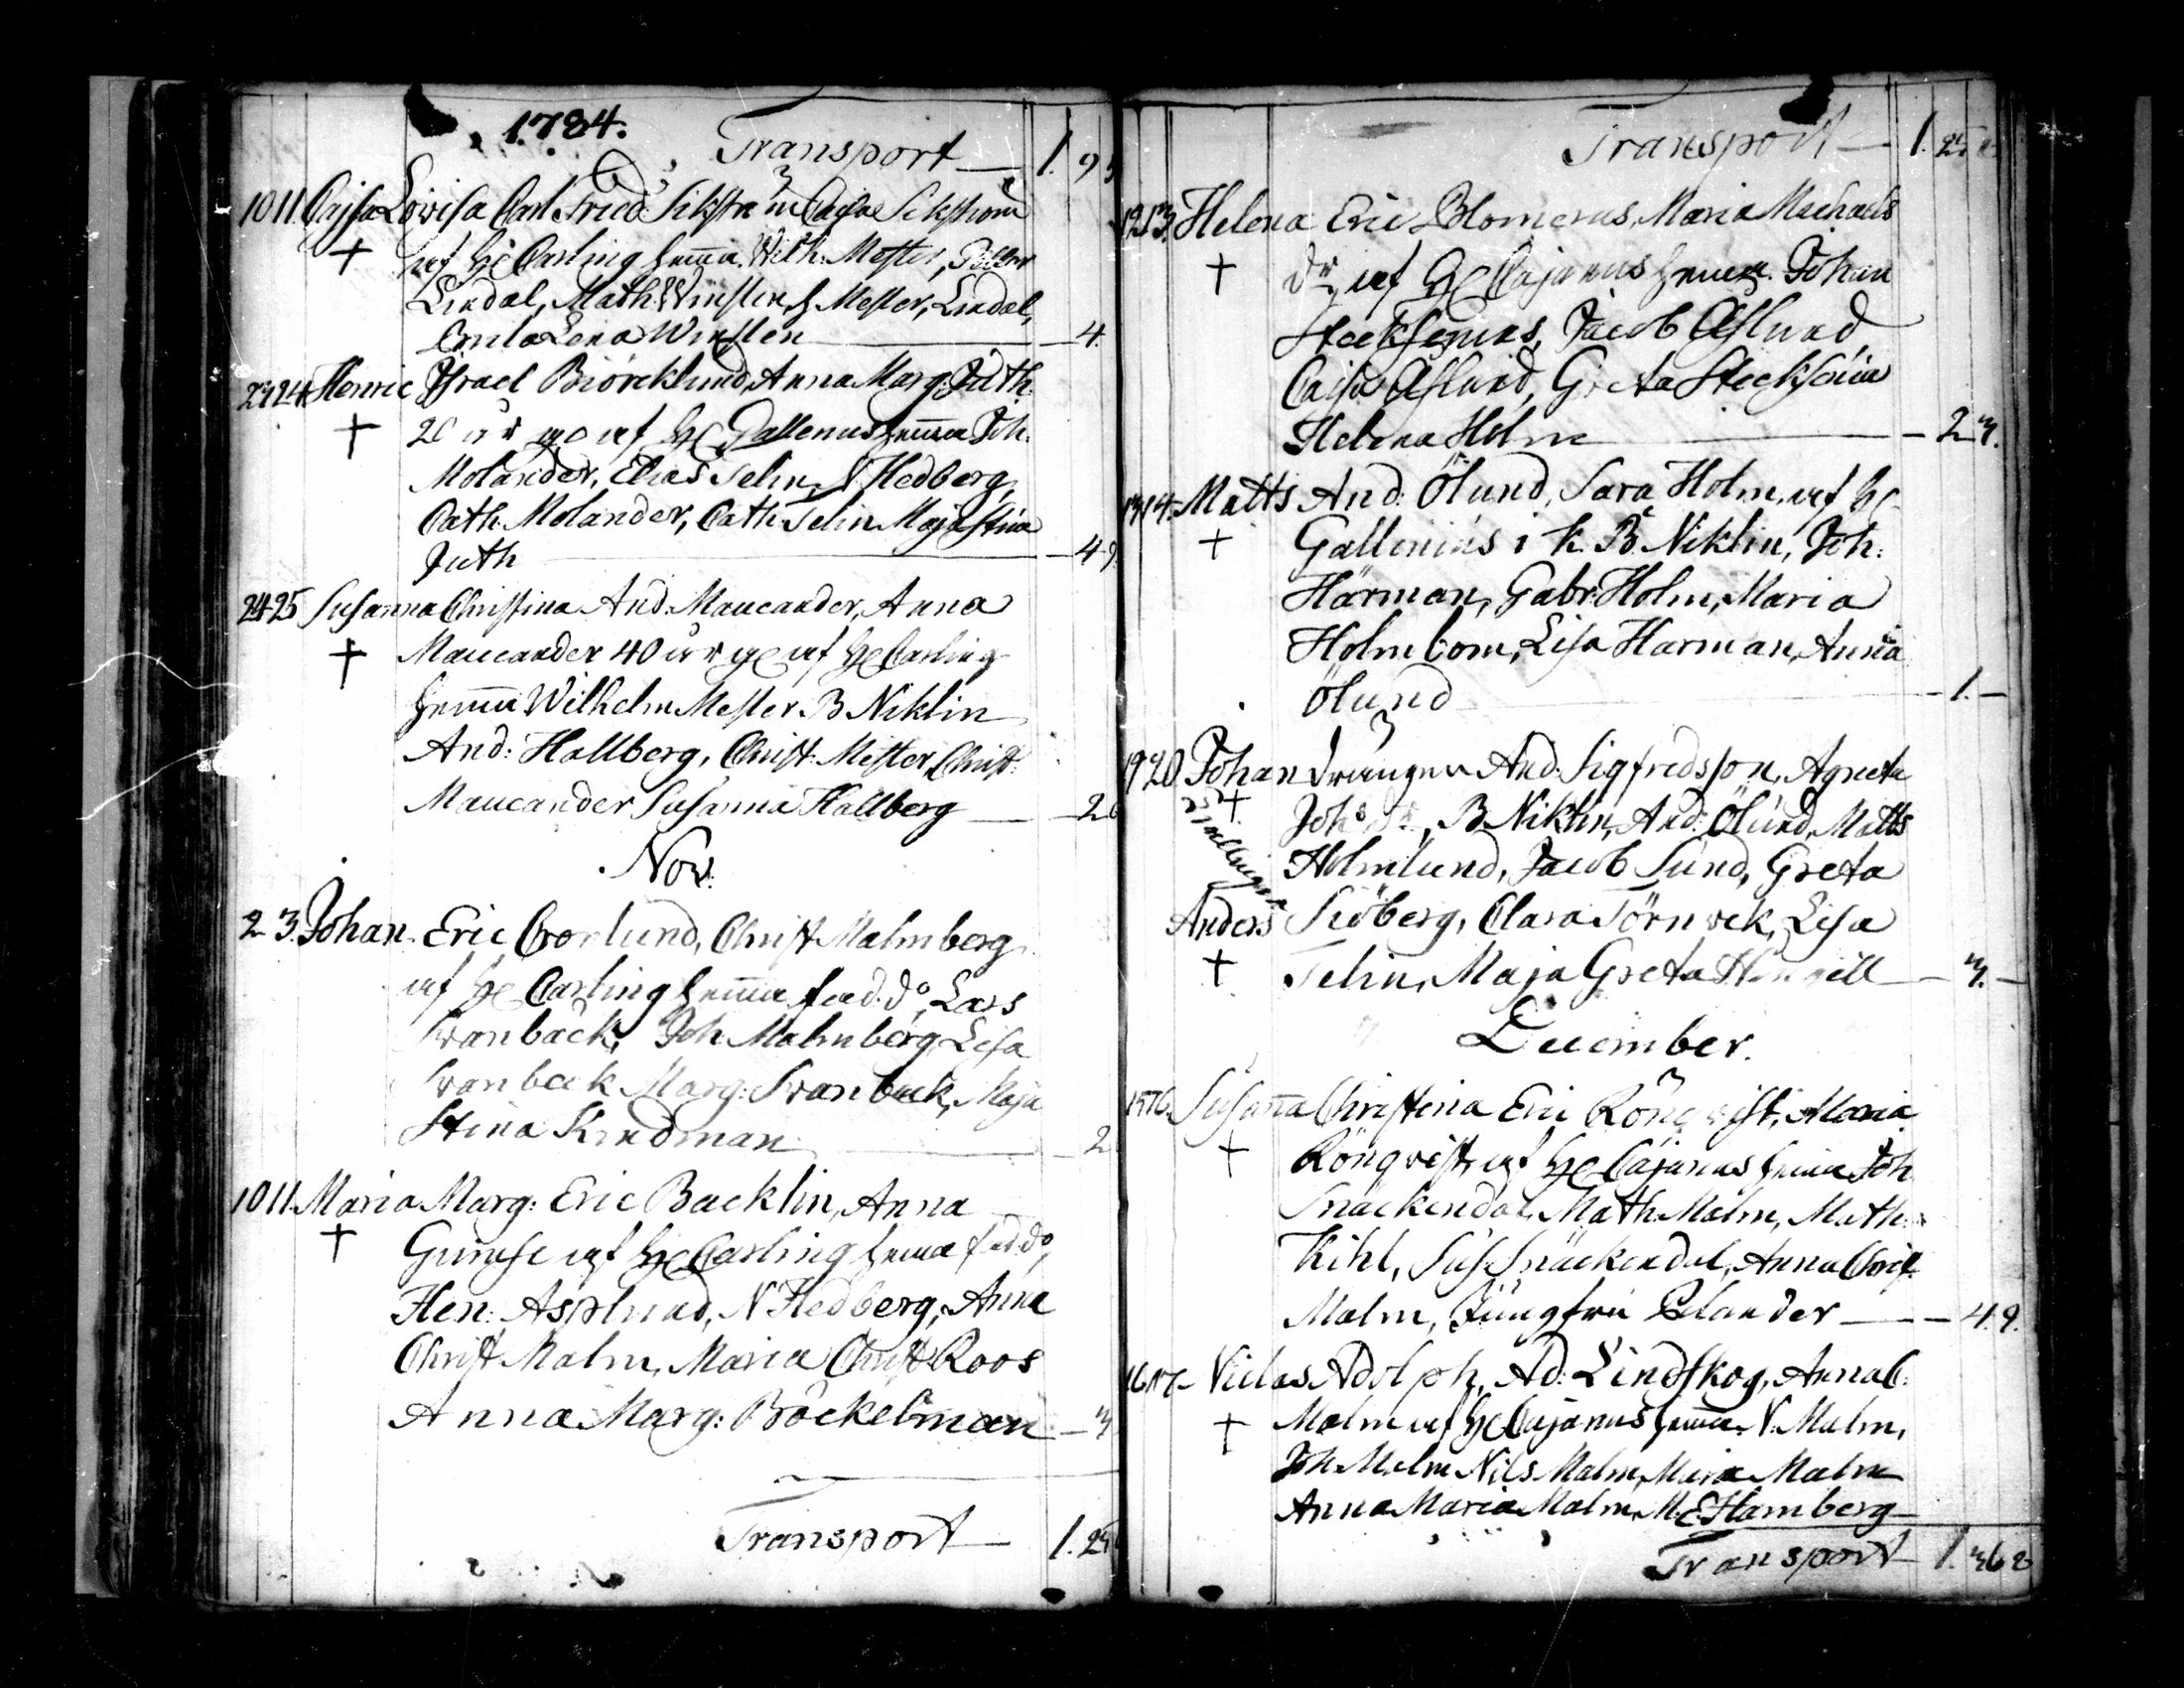 1784.
Transport — 1. 9
10 11. Cajsa Lovisa Carl Fried: Sikström Cajsa Sikström
af H: Carling hemma. Wilh: Mester, Petter
Lindal, Math: Winsten, h Mester, Lindal,
Lena Winsten — 4.
23 24 Henric Israel Biörcklund, Anna Marg: Juth
20 år g: af H: Gallenius hemma Joh:
Molander, Elias Telin, N Hedberg,
Cath. Molander, Cath: Telin Maja Stina
Juth — 4 9.
24 25 Susanna Christina And: Maucander, Anna
Maucander 40 år g: af H: Carling
hemma Wilhelm Mester B Niklin
And: Hallberg, Christ: Mester, Christ:
Maucander Susanna Hallberg — 2
Nov:
2 3. Johan. Eric Cronlund, Christ Malmberg
af H: Carling hemma fad: do, Lars
Svanbäck, Joh Malmberg Lisa
Svanbäck Marg: Svanbäck, Maja
Stina Kindman — 2
10 11. Maria Marg: Eric Backlin, Anna
af H: Carling hemma fad: do,
Hen: Asplund, N Hedberg, Anna
Christ Malm, Maria Christ Roos
Anna Marg: Böckelman — 3
Transport — 1. 25
Transport — 1. 25
12 13. Helena Eric Blomerus, Maria Michaels
dr, af H: Cajanus hemma. Johan
Stecksenius, Jacob Åslund,
Caisa Åslund, Greta Steckseniia
Helena Holm — 2 3.
13 14. Matts And: Ölund, Sara Holm, af H:
Gallenius i k. B Niklin, Joh:
Härman, Gabr: Holm, Maria
Holmbom, Lisa Harman, Anna
Ölund — 1. —
19 20. Johan drängen And: Sigfredsson, Agneta
Johs dr, B Niklin, And: Ölund, Matts
Tvillingar
Holmlund, Jacob Sund, Greta
Anders Siöberg, Clara Törnvek, Lisa
Telin, Maja Greta — 3. —
December.
15 16. Susanna Christina Eric Rönqvist, Maria
Rönqvist, af H: Cajanus hemma Joh
Snäckendal, Math: Malm, Math:
Kihl, Sus: Snäckendal, Anna Christ:
Malm, Jungfru Pelander — 4. 9.
16 17 Niclas Adolph, Ad: Lindskog, Anna C:
Malm af H: Cajanus hemma. N: Malm,
Joh. Malm Nils Malm, Maria Malm
Anna Maria Malm, M: E: Hamberg —
Transport — 1. 36 8